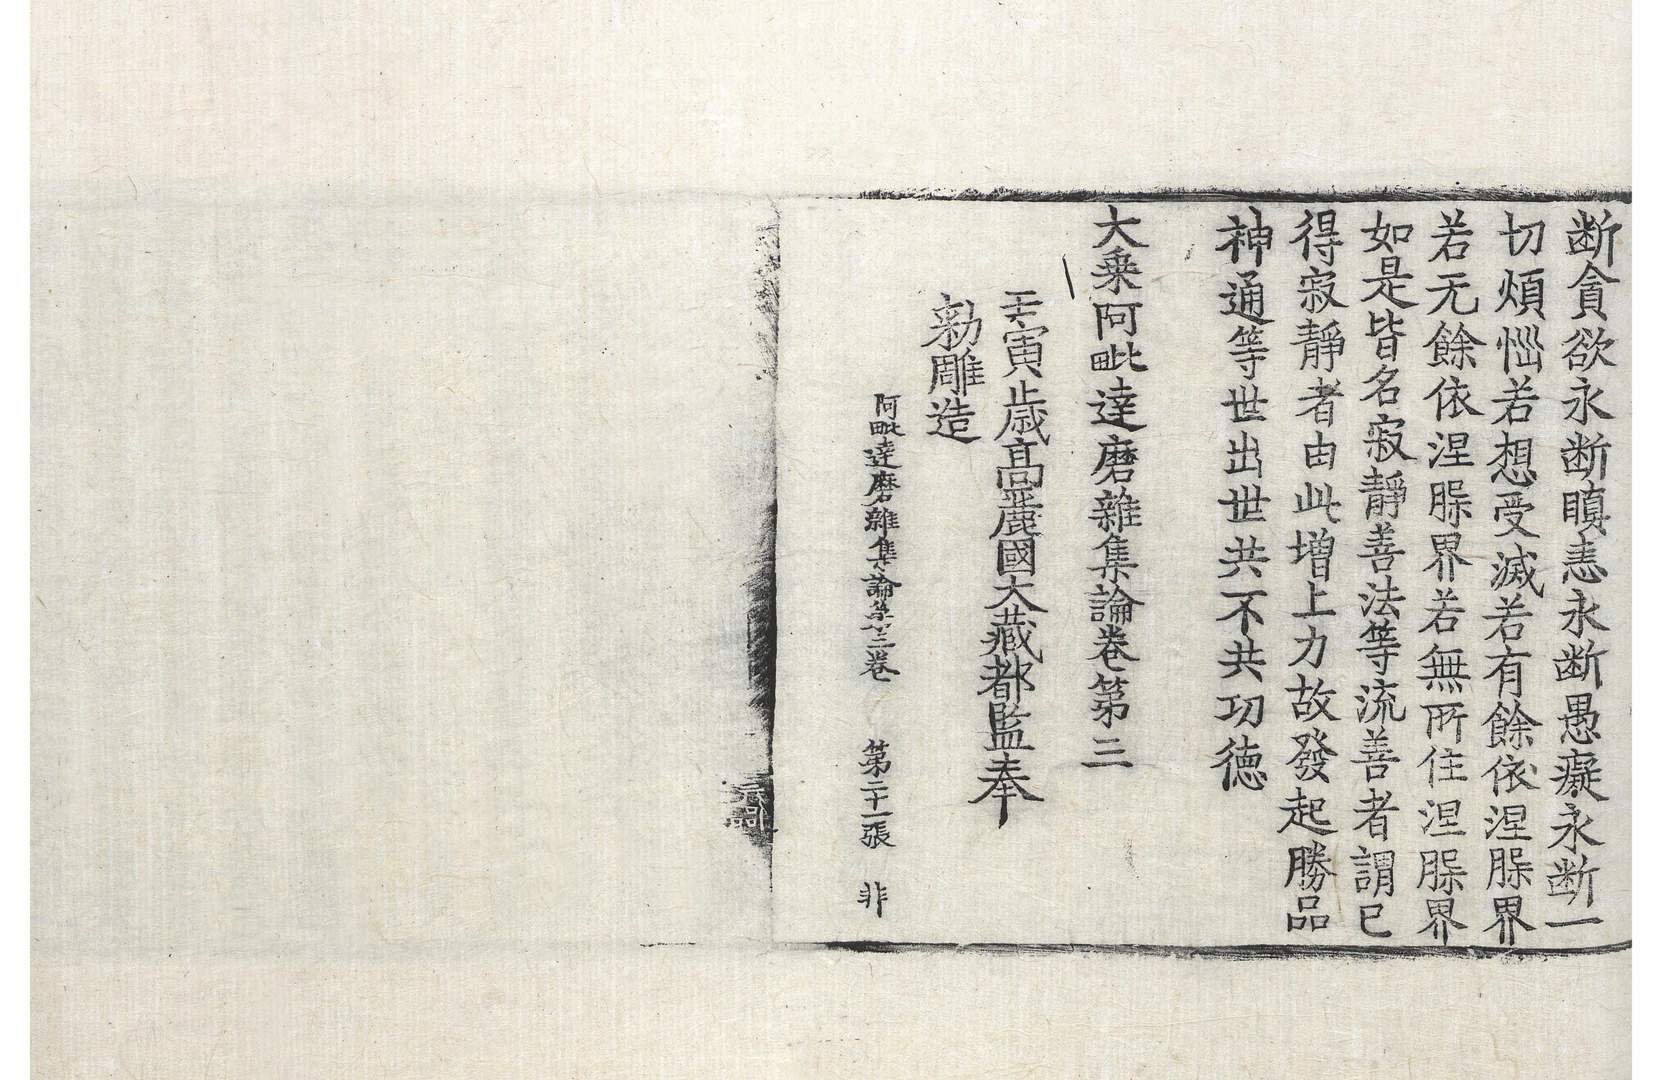 断貪欲永断瞋恚永断愚癡永断一
切煩惱若想受滅若有餘依涅槃界
若无餘依涅槃界若無所住涅槃界
如是皆名寂靜善法等流善者謂已
得寂靜者由此增上力故發起勝品
神通等世出世共不共功德
大乘阿毗達磨雜集論卷第三
壬寅歲高麗國大藏都監奉
勑雕造
阿毗達磨雜集論第三卷 第二十一張 非